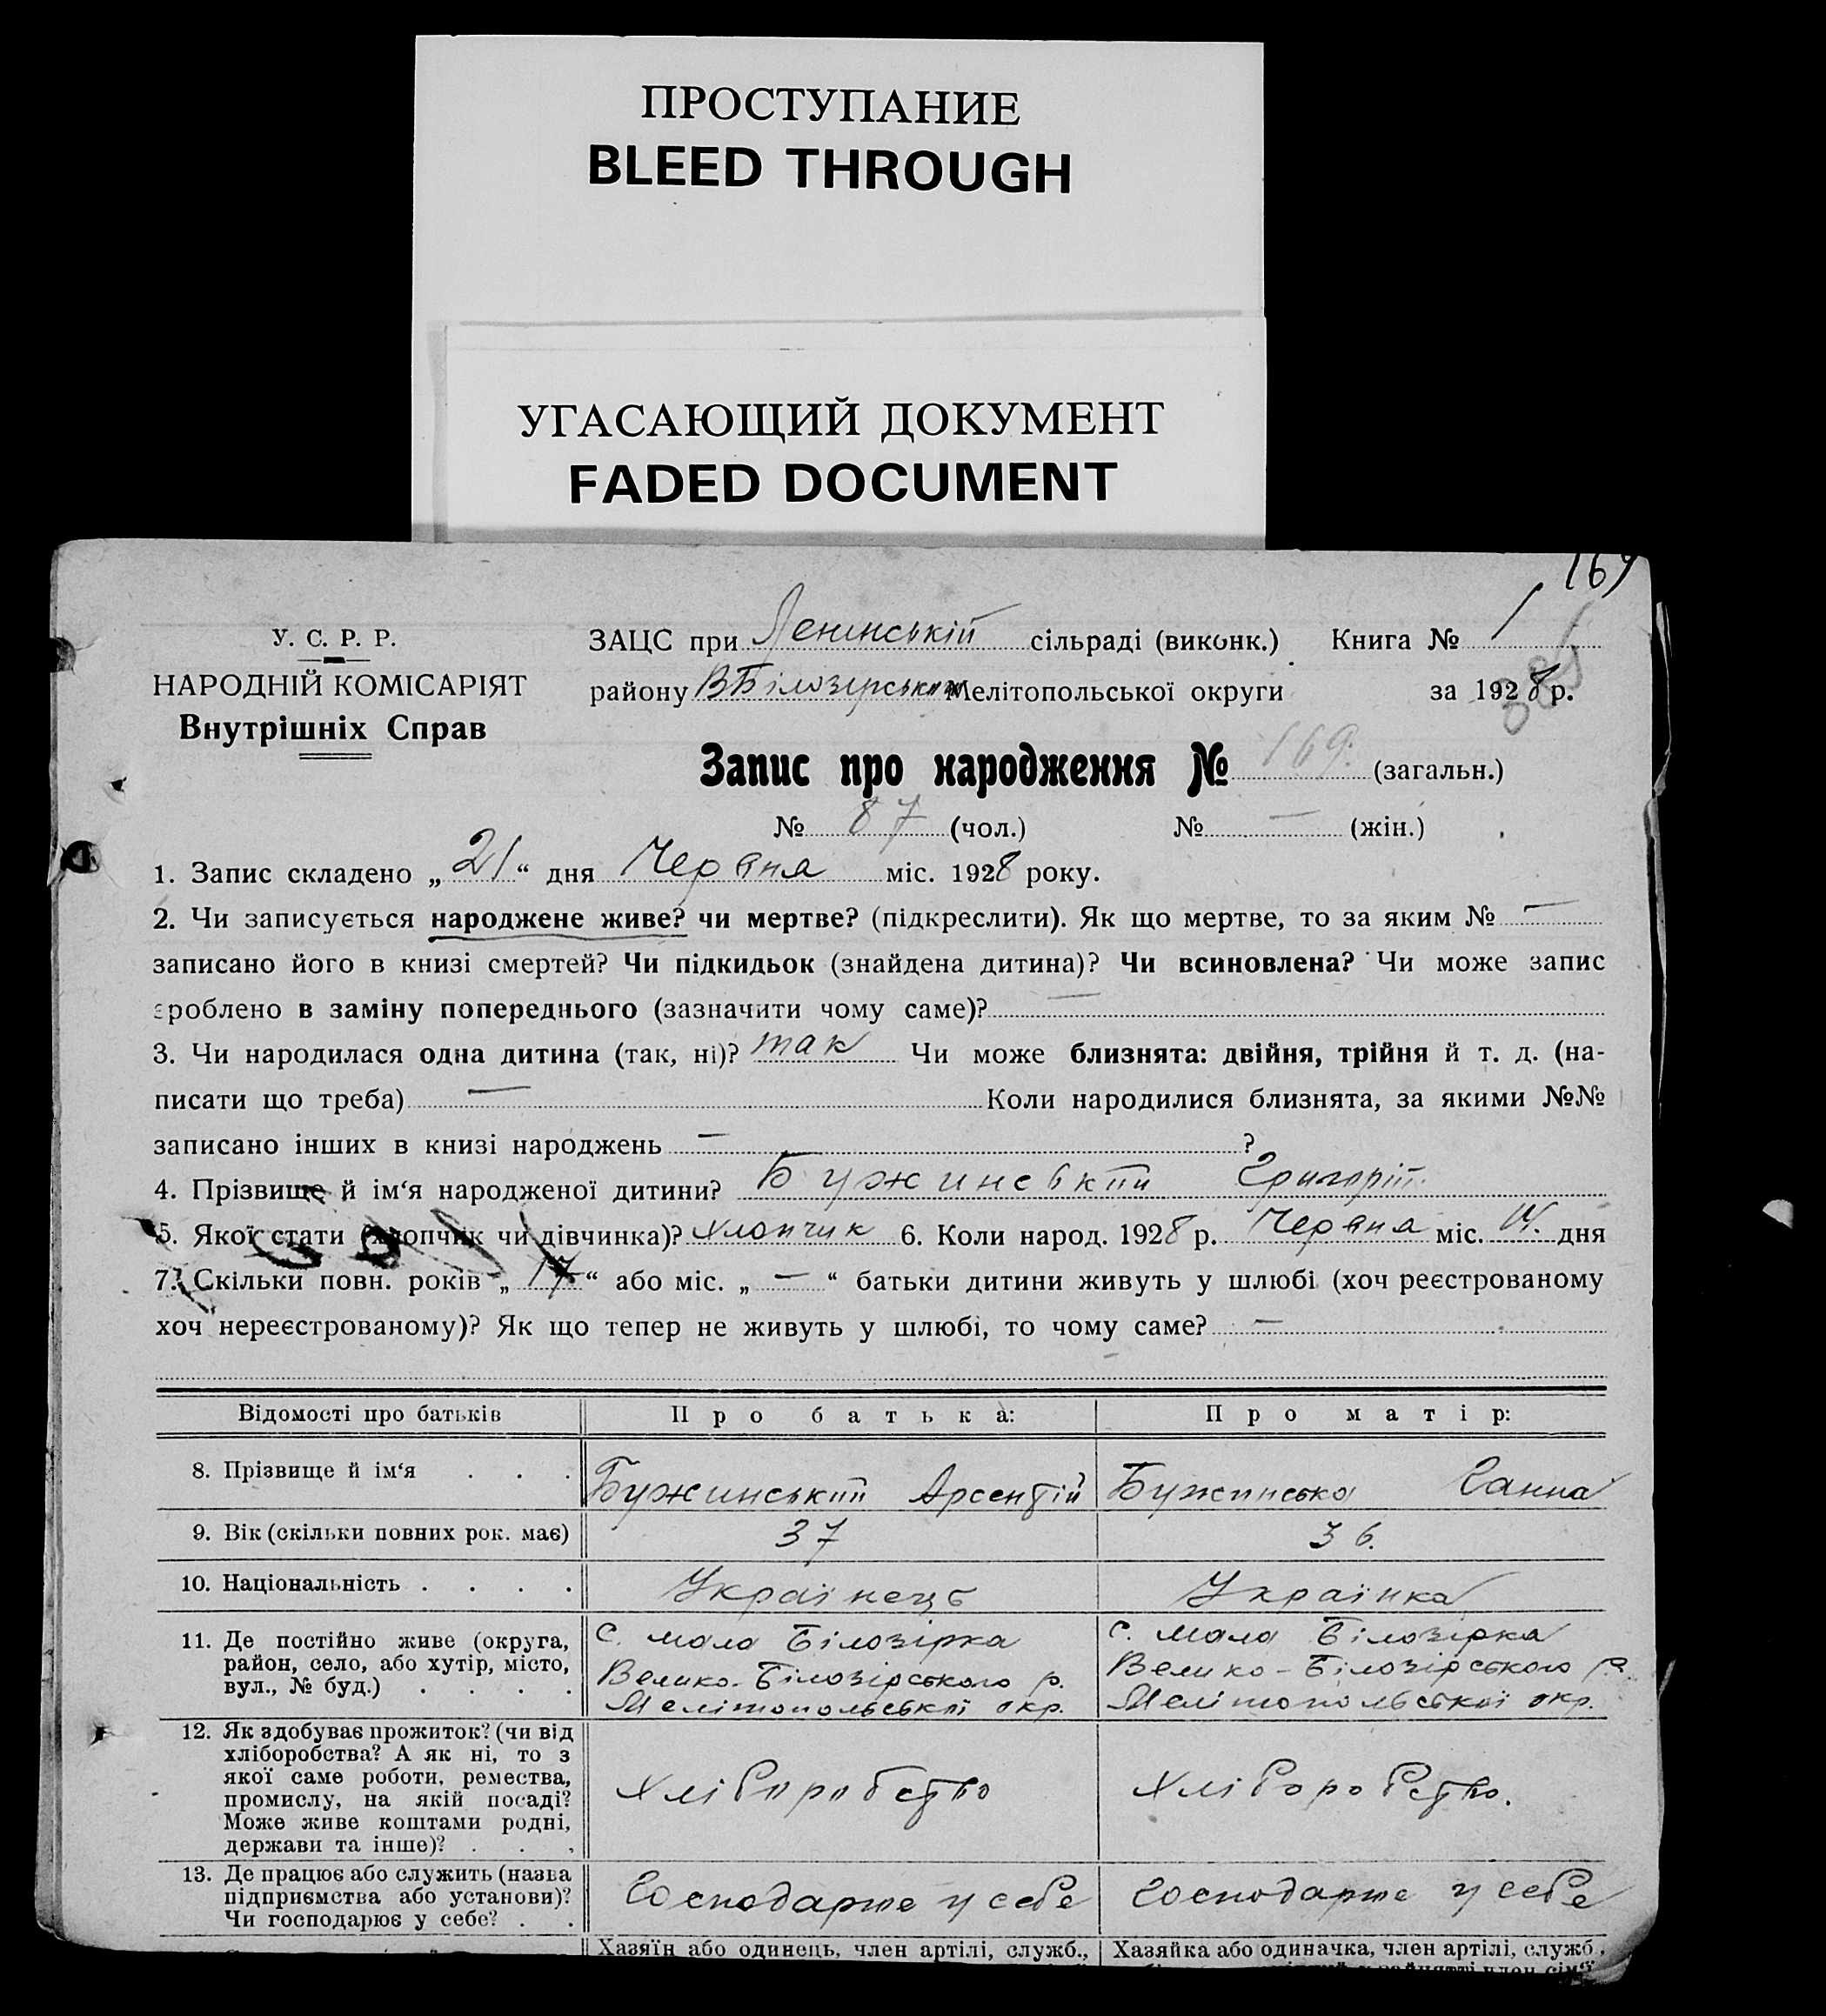 ПРОСТУПАНИЕ
BLEED THROUGH
УГАСАЮЩИЙ ДОКУМЕНТ
FADED DOCUMENT
У. С. Р. Р.
НАРОДНІЙ КОМІСАРІЯТ
Внутрішніх Справ
ЗАЦС при Ленинській сільраді (виконк.) Книга № 1
району ВБілозирським Мелітопольської округи за 1928 р.
Запис про народження № 169. (загальн.)
№ 87 (чол.) № — (жін.)
1. Запис складено „21“ дня Червня міс. 1928 року.
2. Чи записується народжене живе? чи мертве? (підкреслити). Як що мертве, то за яким № —
записано його в книзі смертей? Чи підкидьок (знайдена дитина)? Чи всиновлена? Чи може запис
зроблено в заміну попереднього (зазначити чому саме)? —
3. Чи народилася одна дитина (так, ні)? так Чи може близнята: двійня, трійня й т. д. (на-
писати що треба) — Коли народилися близнята, за якими №№
записано інших в книзі народжень — ?
4. Прізвище й ім‘я народженої дитини? Бужинський Григорій
5. Якої стати (хлопчик чи дівчинка)? хлопчик 6. Коли народ. 1928 р. Червня міс. 14. дня
7. Скільки повн. років „17“ або міс. „ — “ батьки дитини живуть у шлюбі (хоч реєстрованому
хоч нереєстрованому)? Як що тепер не живуть у шлюбі, то чому саме? —
Відомості про батьків Про батька: Про матір:
8. Прізвище й ім‘я . . . Бужинський Арсентій Бужинська Ганна
9. Вік (скільки повних рок. має) 37 36.
10. Національність . . . . Українець Українка
11. Де постійно живе (округа,
район, село, або хутір, місто,
вул., № буд.) . . . .
с. мала Білозірка
Велико-Білозірського р.
Мелітопольської окр.
с. мала Білозірка
Велико-Білозірського р.
Мелітопольської окр.
12. Як здобуває прожиток? (чи від
хліборобства? А як ні, то з
якої саме роботи, ремества,
промислу, на якій посаді?
Може живе коштами родні,
держави та інше)? . . .
Хліборобство
Хліборобство.
13. Де працює або служить (назва
підприємства або установи)?
Чи господарює у себе? . .
Господарює у себе
Господарює у себе
Хазяїн або одинець, член артілі, служб., Хазяйка або одиначка, член артілі, служб.,